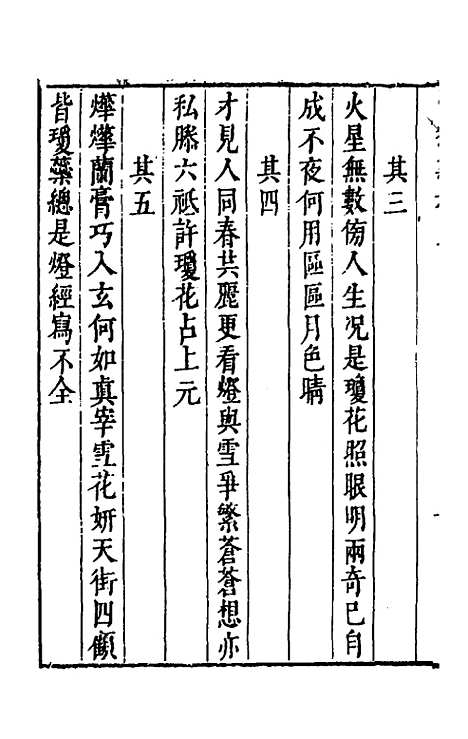 其三
火星無數傍人生况是瓊花照眼明兩奇已自
成不夜何用區區月色晴
其四
才見人同春共麗更看燈與雪爭繁蒼蒼想亦
私滕六祗許瓊花占上元
其五
燁燁蘭膏巧入玄何如真宰雪花妍天街四顧
皆瓊蘂總是燈經寫不全